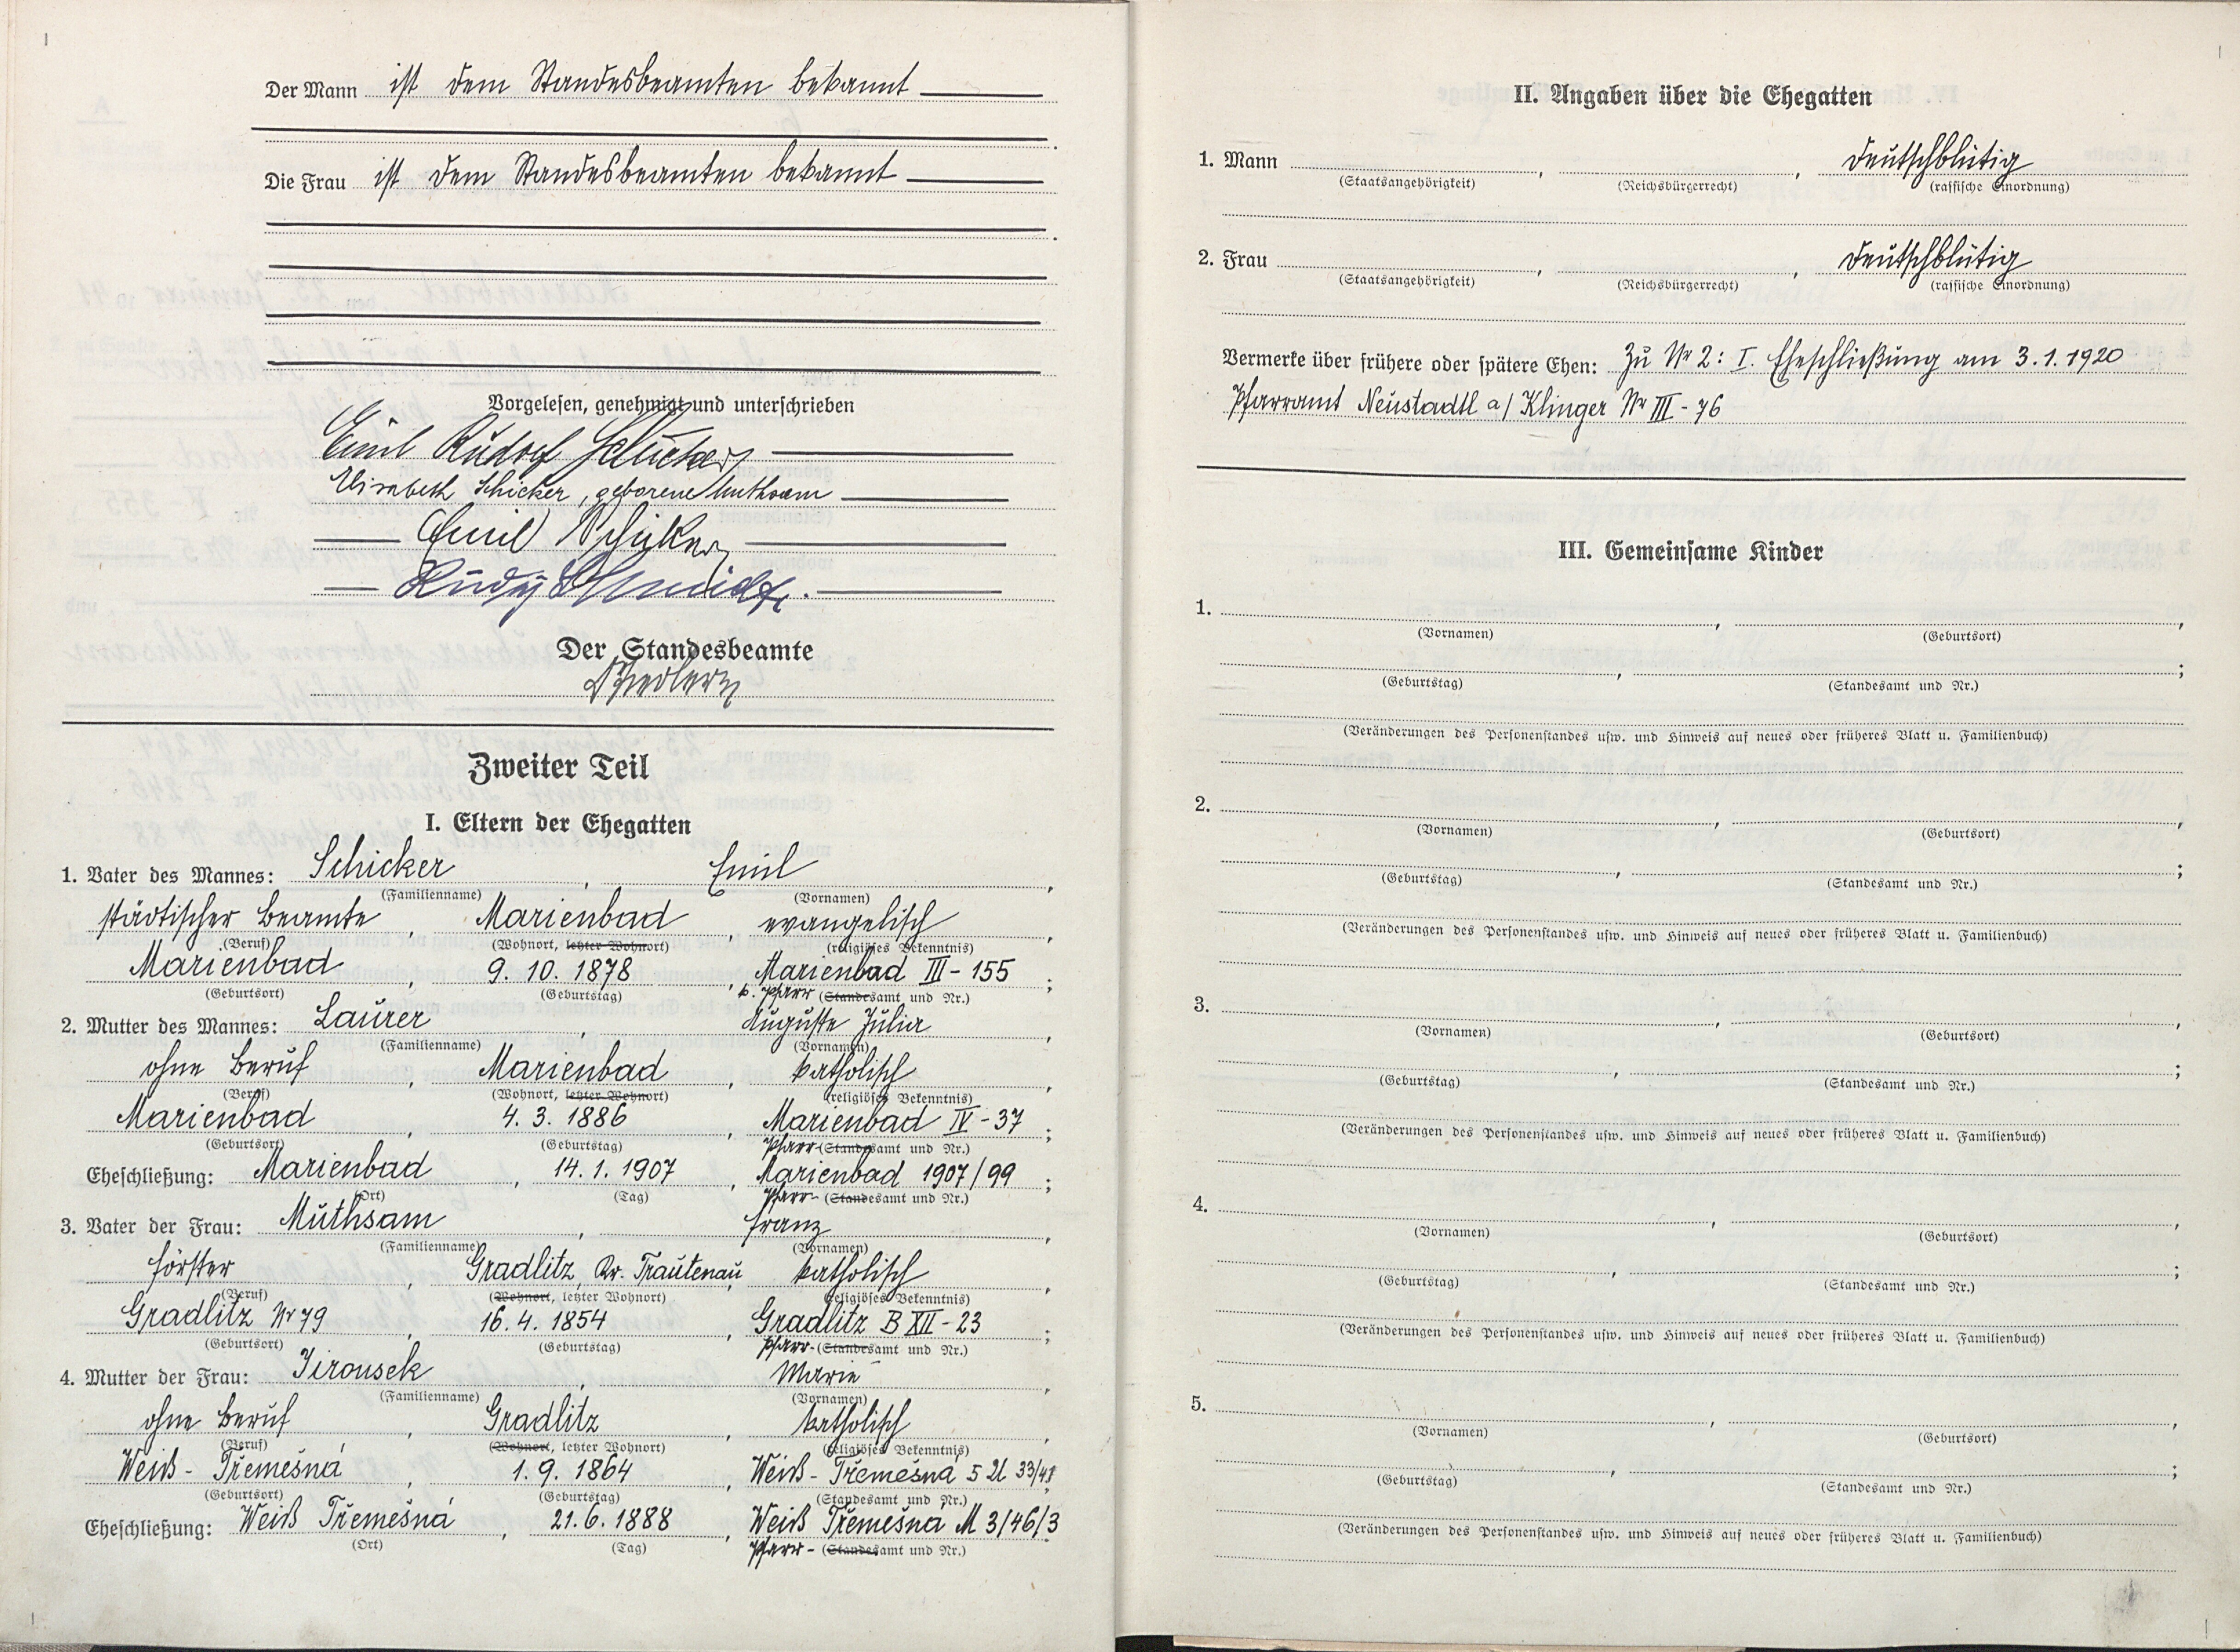 Der Mann ist dem Standesbeamten bekannt
Die Frau ist dem Standesbeamten bekannt
Vorgelesen, genehmigt und unterschrieben
Emil Rudolf Schicker
Elisabeth Schicker, geborene Muthsam
Emil Schicker
Der Standesbeamte
Zweiter Teil
I. Eltern der Ehegatten
1. Vater des Mannes: Schicker, Emil,
(Familienname) (Vornamen)
städtischer Beamte, Marienbad, evangelisch,
(Beruf) (Wohnort, letzter Wohnort) (religiöses Bekenntnis)
Marienbad, 9. 10. 1878, Marienbad III - 155;
(Geburtsort) (Geburtstag) k. Pfarr (Standesamt und Nr.)
2. Mutter des Mannes: Laurer, Auguste Julia,
(Familienname) (Vornamen)
ohne Beruf, Marienbad, katholisch,
(Beruf) (Wohnort, letzter Wohnort) (religiöses Bekenntnis)
Marienbad, 4. 3. 1886, Marienbad IV - 37;
(Geburtsort) (Geburtstag) Pfarr- (Standesamt und Nr.)
Eheschließung: Marienbad, 14. 1. 1907, Marienbad 1907/99;
(Ort) (Tag) Pfarr- (Standesamt und Nr.)
3. Vater der Frau: Muthsam, Franz,
(Familienname) (Vornamen)
Förster, Gradlitz, Kr. Trautenau, katholisch,
(Beruf) (Wohnort, letzter Wohnort) (religiöses Bekenntnis)
Gradlitz Nr 79, 16. 4. 1854, Gradlitz B XII - 23;
(Geburtsort) (Geburtstag) Pfarr- (Standesamt und Nr.)
4. Mutter der Frau: Jirousek, Marie,
(Familienname) (Vornamen)
ohne Beruf, Gradlitz, katholisch,
(Beruf) (Wohnort, letzter Wohnort) (religiöses Bekenntnis)
Weiß - Třemešná, 1. 9. 1864, Weiß - Třemešná 5
(Geburtsort) (Geburtstag) (Standesamt und Nr.)
Eheschließung: Weiß Třemešná, 21. 6. 1888, Weiß Třemešná M 3/46/3
(Ort) (Tag) Pfarr- (Standesamt und Nr.)
II. Angaben über die Ehegatten
1. Mann, , deutschblütig
(Staatsangehörigkeit) (Reichsbürgerrecht) (rassische Einordnung)
2. Frau, , deutschblütig
(Staatsangehörigkeit) (Reichsbürgerrecht) (rassische Einordnung)
Vermerke über frühere oder spätere Ehen: Zu Nr 2: I. Eheschließung am 3. 1. 1920
Pfarramt Neustadtl a/ Klinger Nr III - 76
III. Gemeinsame Kinder
1. , ,
(Vornamen) (Geburtsort)
, ;
(Geburtstag) (Standesamt und Nr.)
(Veränderungen des Personenstandes usw. und Hinweis auf neues oder früheres Blatt u. Familienbuch)
2. , ,
(Vornamen) (Geburtsort)
, ;
(Geburtstag) (Standesamt und Nr.)
(Veränderungen des Personenstandes usw. und Hinweis auf neues oder früheres Blatt u. Familienbuch)
3. , ,
(Vornamen) (Geburtsort)
, ;
(Geburtstag) (Standesamt und Nr.)
(Veränderungen des Personenstandes usw. und Hinweis auf neues oder früheres Blatt u. Familienbuch)
4. , ,
(Vornamen) (Geburtsort)
, ;
(Geburtstag) (Standesamt und Nr.)
(Veränderungen des Personenstandes usw. und Hinweis auf neues oder früheres Blatt u. Familienbuch)
5. , ,
(Vornamen) (Geburtsort)
, ;
(Geburtstag) (Standesamt und Nr.)
(Veränderungen des Personenstandes usw. und Hinweis auf neues oder früheres Blatt u. Familienbuch)